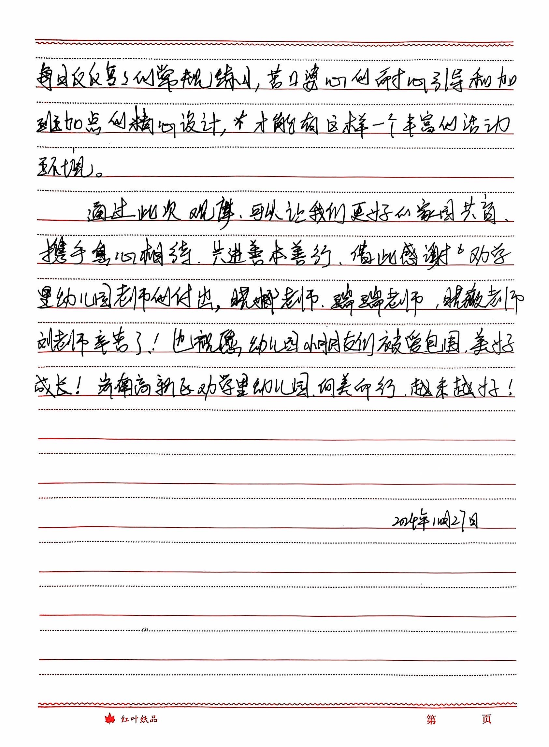 每日反反复复的常规练习，苦口婆心的耐心引导和加
班加点的精心设计，才能有这样一个丰富的活动
环境。
通过此次观摩，可以让我们更好的家园共育、
携手息心相待，共进善本善行，借此感谢劝学
里幼儿园老师的付出，老师、瑞瑞老师，晓敏老师
刘老师辛苦了！也祝愿幼儿园小朋友们被爱包围，美好
成长！高新区劝学里幼儿园，向美而行，越来越好！
2024年10月27日
红叶纸品
第 页